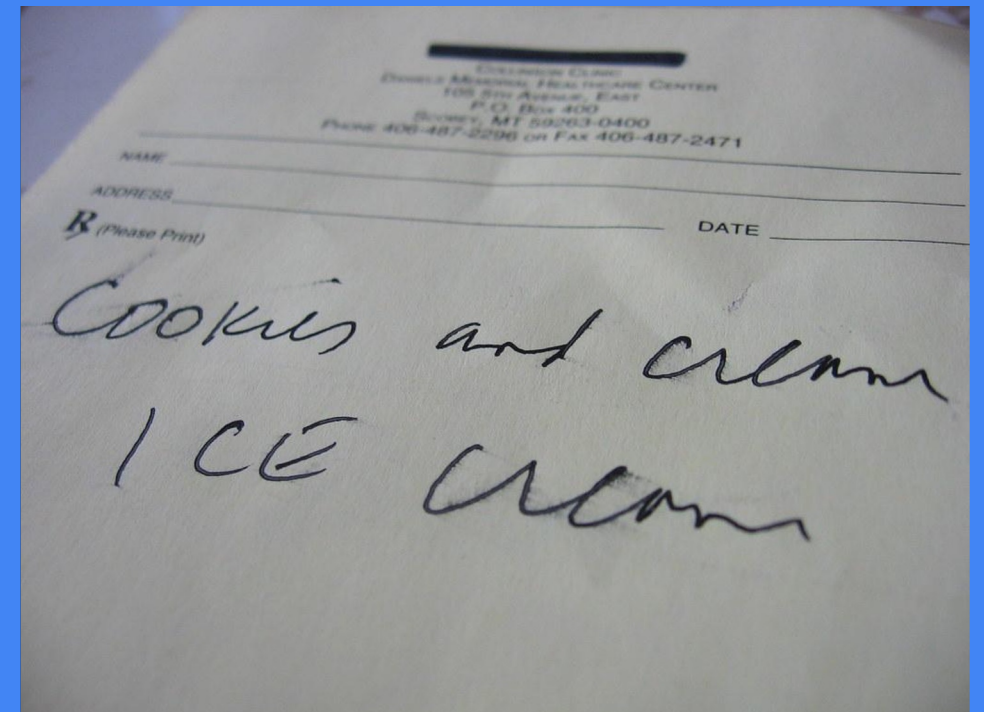 Clinic
Daniels Memorial Healthcare Center
105 5th Avenue, East
P.O. Box 400
Scobey, MT 59263-0400
Phone 406-487-2296 or Fax 406-487-2471
NAME
ADDRESS
DATE
Rx (Please Print)
Cookies and cream
ICE cream